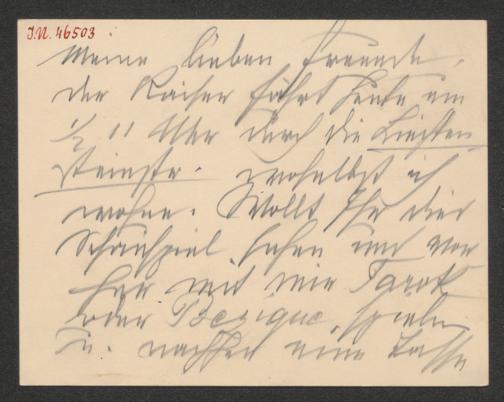 I.N. 46503
Meine lieben Freunde,
der Kaiser fährt heute um
1/2 11 Uhr durch die Liechten
steinstr. woselbst ich
wohne. Wollt Ihr dies
Schauspiel sehen und vor
her mit mir Tarok
oder Bezique spielen
u. nachher eine Tasse